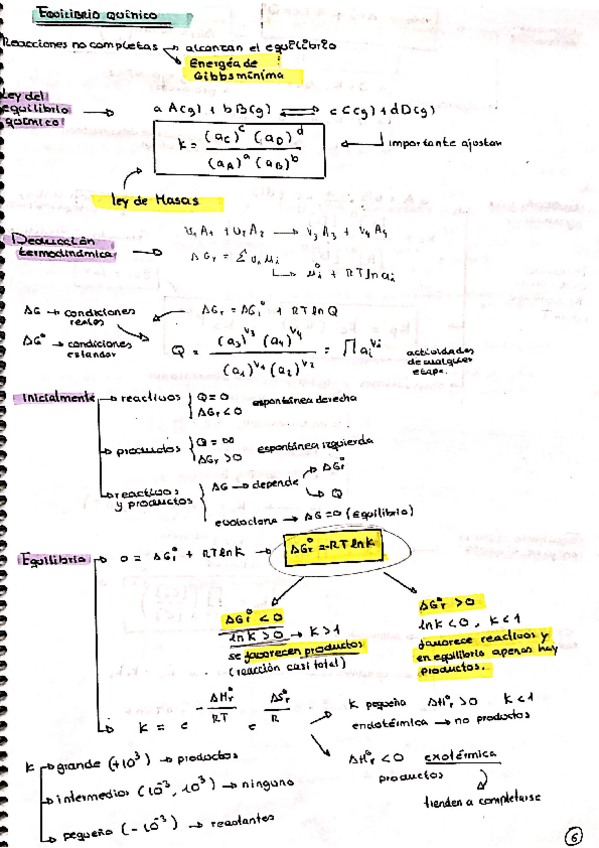 Equilibrio químico
Reacciones no completas → alcanzan el equilibrio
↳ Energía de Gibbs mínima
Ley del equilibrio químico → a A(g) + b B(g) ⇌ c C(g) + d D(g)
K = (a_C)^c (a_D)^d / (a_A)^a (a_B)^b ← importante ajustar
ley de Masas
Deducción termodinámica → ν₁A₁ + ν₂A₂ → ν₃A₃ + ν₄A₄
ΔGr = Σ νi μi
↳ μi° + RT ln ai
ΔG → condiciones reales ← ΔGr = ΔGr° + RT ln Q
ΔG° → condiciones estandar
Q = (a₃)^ν₃ (a₄)^ν₄ / (a₁)^ν₁ (a₂)^ν₂ = ∏ ai^νi
actividades de cualquier etapa.
Inicialmente → reactivos { Q = 0
ΔGr < 0 espontánea derecha
↳ productos { Q = ∞
ΔGr > 0 espontánea izquierda
↳ reactivos y productos { ΔG → depende → ΔGr°
↳ Q
evoluciona → ΔG = 0 (Equilibrio)
Equilibrio → 0 = ΔGr° + RT ln K → ΔGr° = -RT ln K
ΔGr° < 0
ln K > 0 → K > 1
se favorecen productos
(reacción casi total)
ΔGr° > 0
ln K < 0, K < 1
favorece reactivos y
en equilibrio apenas hay
productos.
↳ K = e^(-ΔHr°/RT) e^(ΔSr°/R)
K pequeña ΔHr° > 0 K < 1
endotérmica → no productos
ΔHr° < 0 exotérmica
productos
tienden a completarse
K → grande (+10³) → productos
↳ intermedios (10⁻³, 10³) → ninguno
↳ pequeño (-10⁻³) → reactantes
6